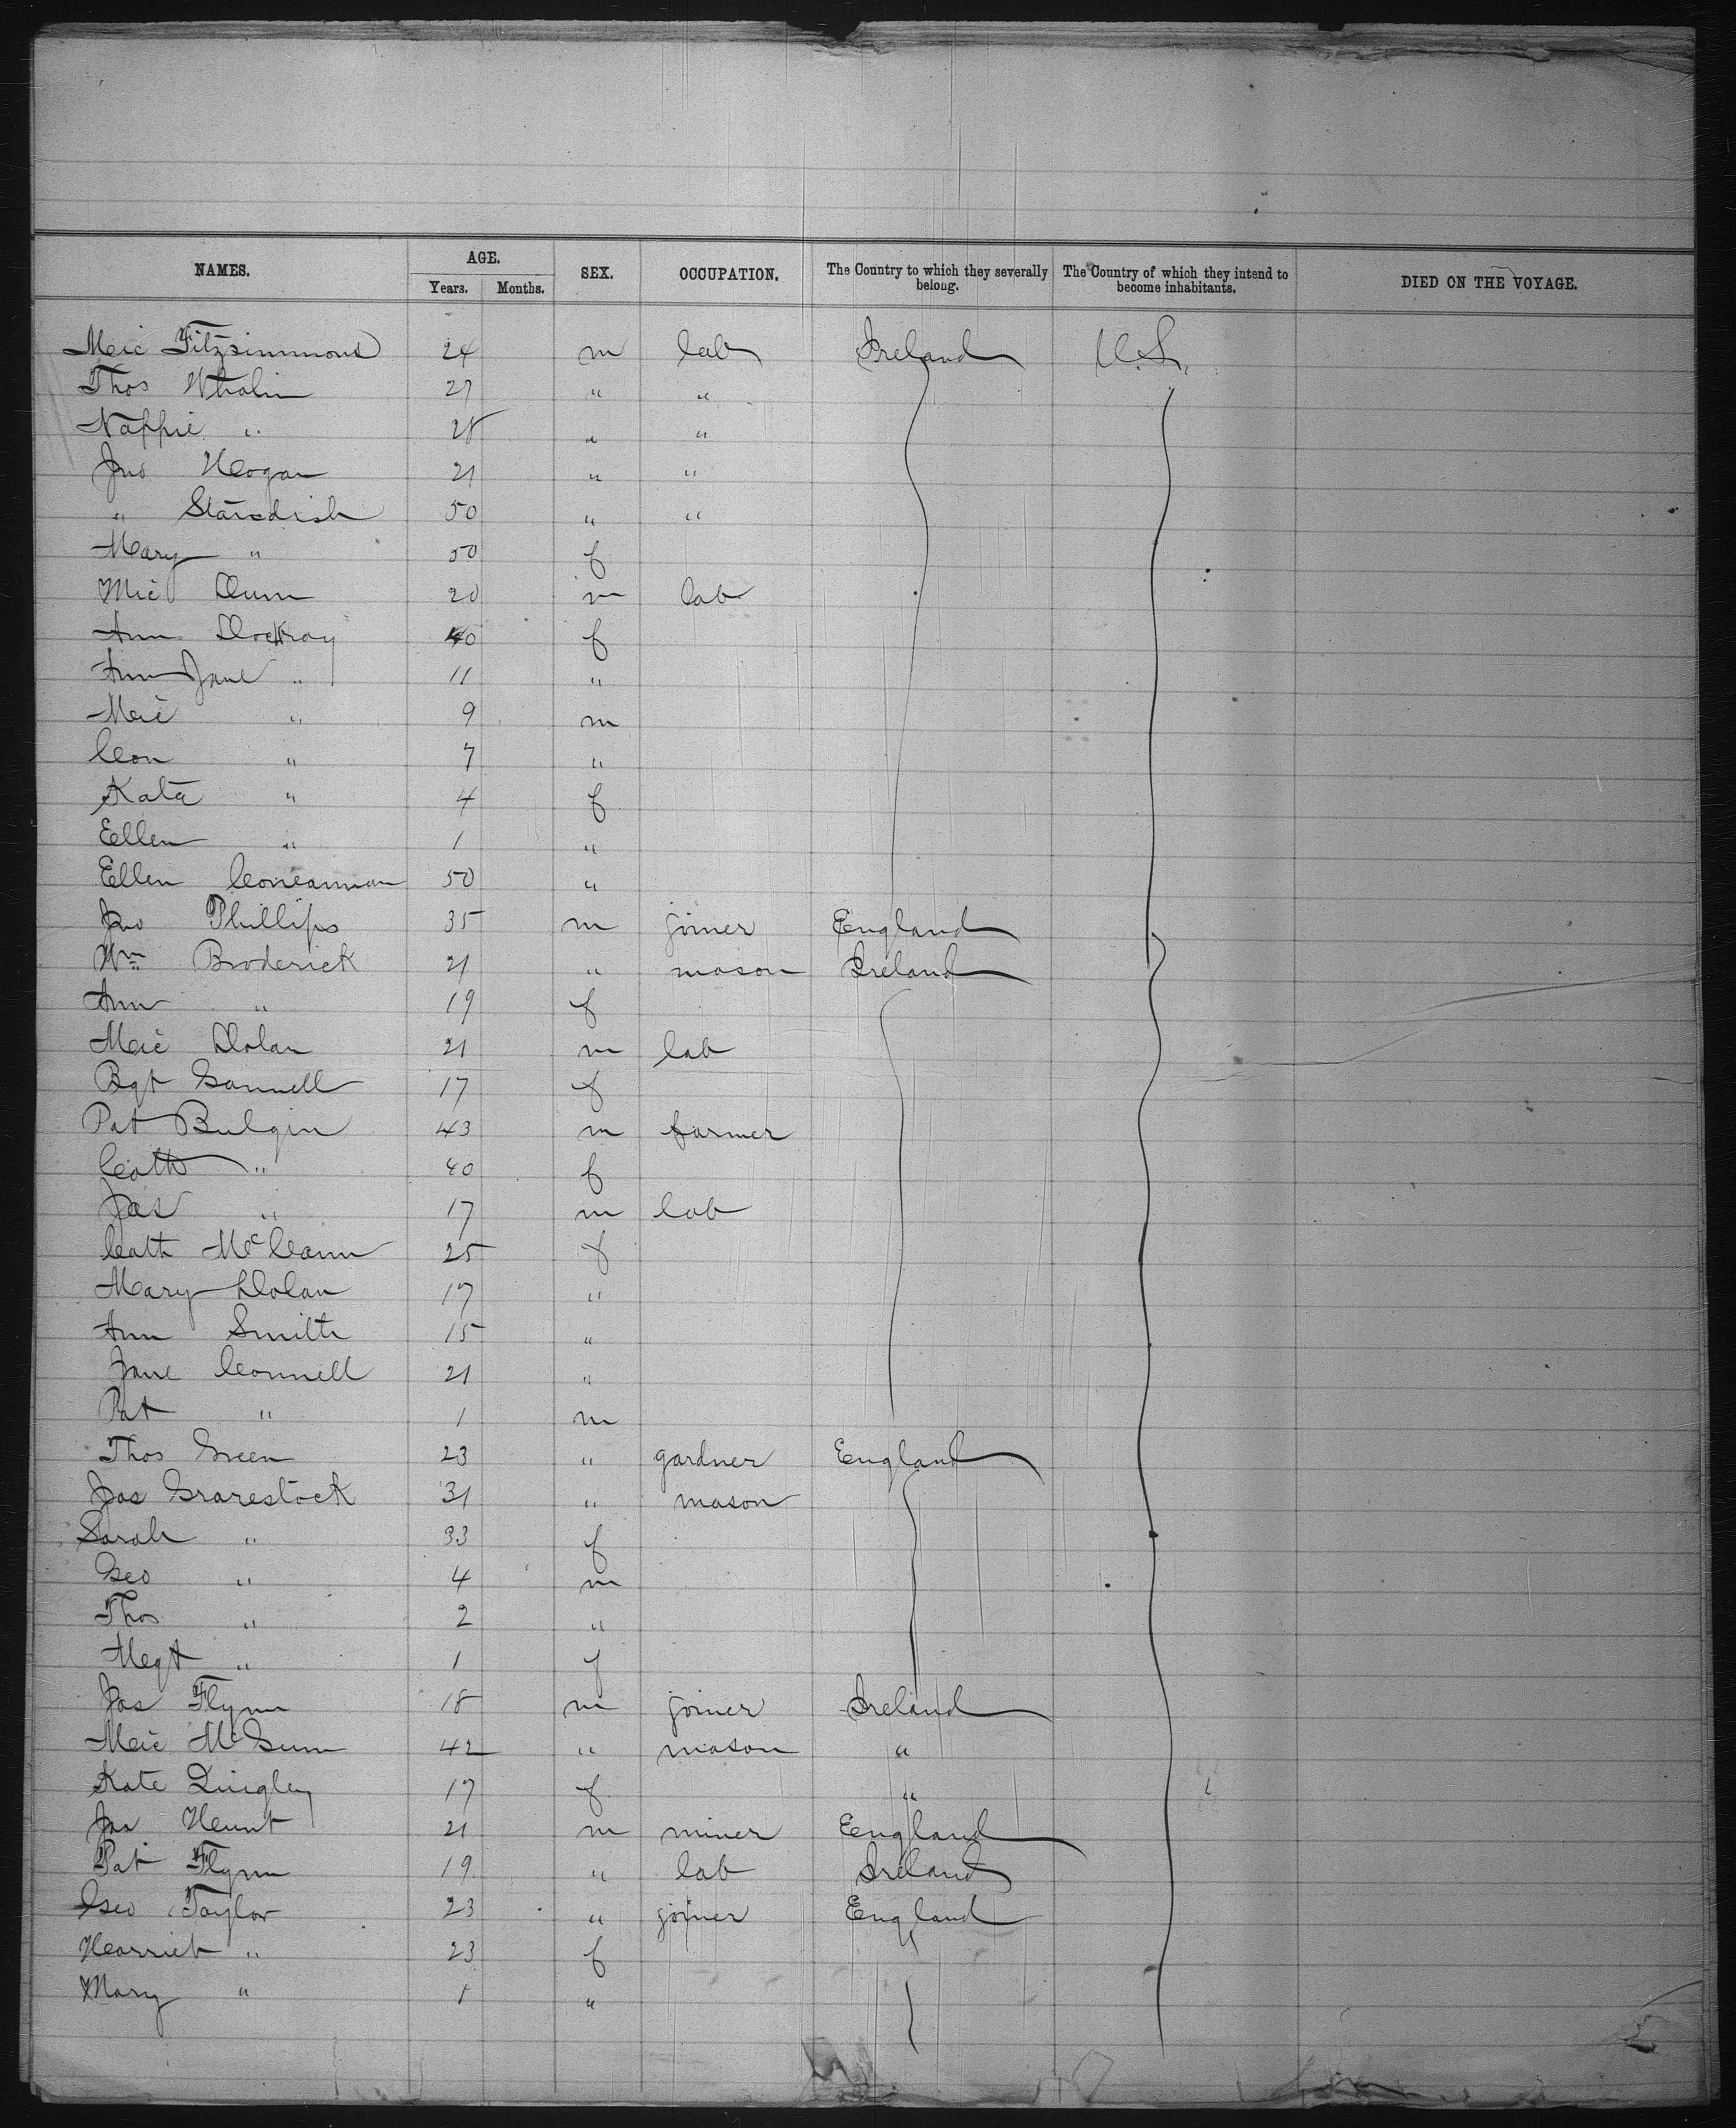 NAMES. AGE. SEX. OCCUPATION. The Country to which they severally belong. The Country of which they intend to become inhabitants. DIED ON THE VOYAGE.
Years. Months.
Mic Fitzsimmons 24 m lab Ireland U.S.
Thos Whalin 27 " "
28 " "
Jno Hogan 21 " "
" Standish 50 " "
Mary " 50 f
Mic Dunn 20 m lab
Ann Dockray 40 f
Ann Jane " 11 "
Mic " 9 m
Con " 7 "
Kate " 4 f
Ellen " 1 "
Ellen 50 "
Jno Phillips 35 m joiner England
Wm Broderick 21 " mason Ireland
Ann " 19 f
Mic Dolan 21 m lab
Bgt Gannell 17 f
Pat Bulgin 43 m farmer
Cath " 40 f
Jas " 17 m lab
Cath McCann 25 f
Mary Dolan 17 "
Ann Smith 15 "
Jane Connell 21 "
Pat " 1 m
Thos Green 23 " gardner England
Jas Grarestock 31 " mason
Sarah " 33 f
Geo " 4 m
Thos " 2 "
Megt " 1 f
Jas Flynn 18 m joiner Ireland
Mic McGunn 42 " mason "
Kate Quigley 17 f "
Jas Hunt 21 m miner England
Pat Flynn 19 " lab Ireland
Geo Taylor 23 " joiner England
Harriet " 23 f
Mary " 1 "